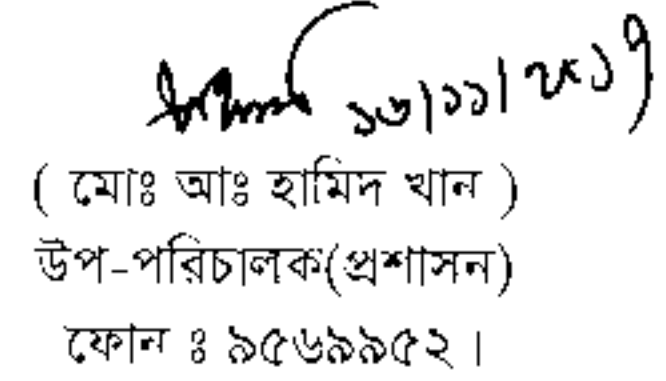 ১৬/১১/২০১৭
( মোঃ আঃ হামিদ খান )
উপ-পরিচালক(প্রশাসন)
ফোন ঃ ৯৫৬৯৯৫২ ।